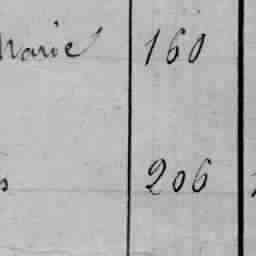 Marie 160
206